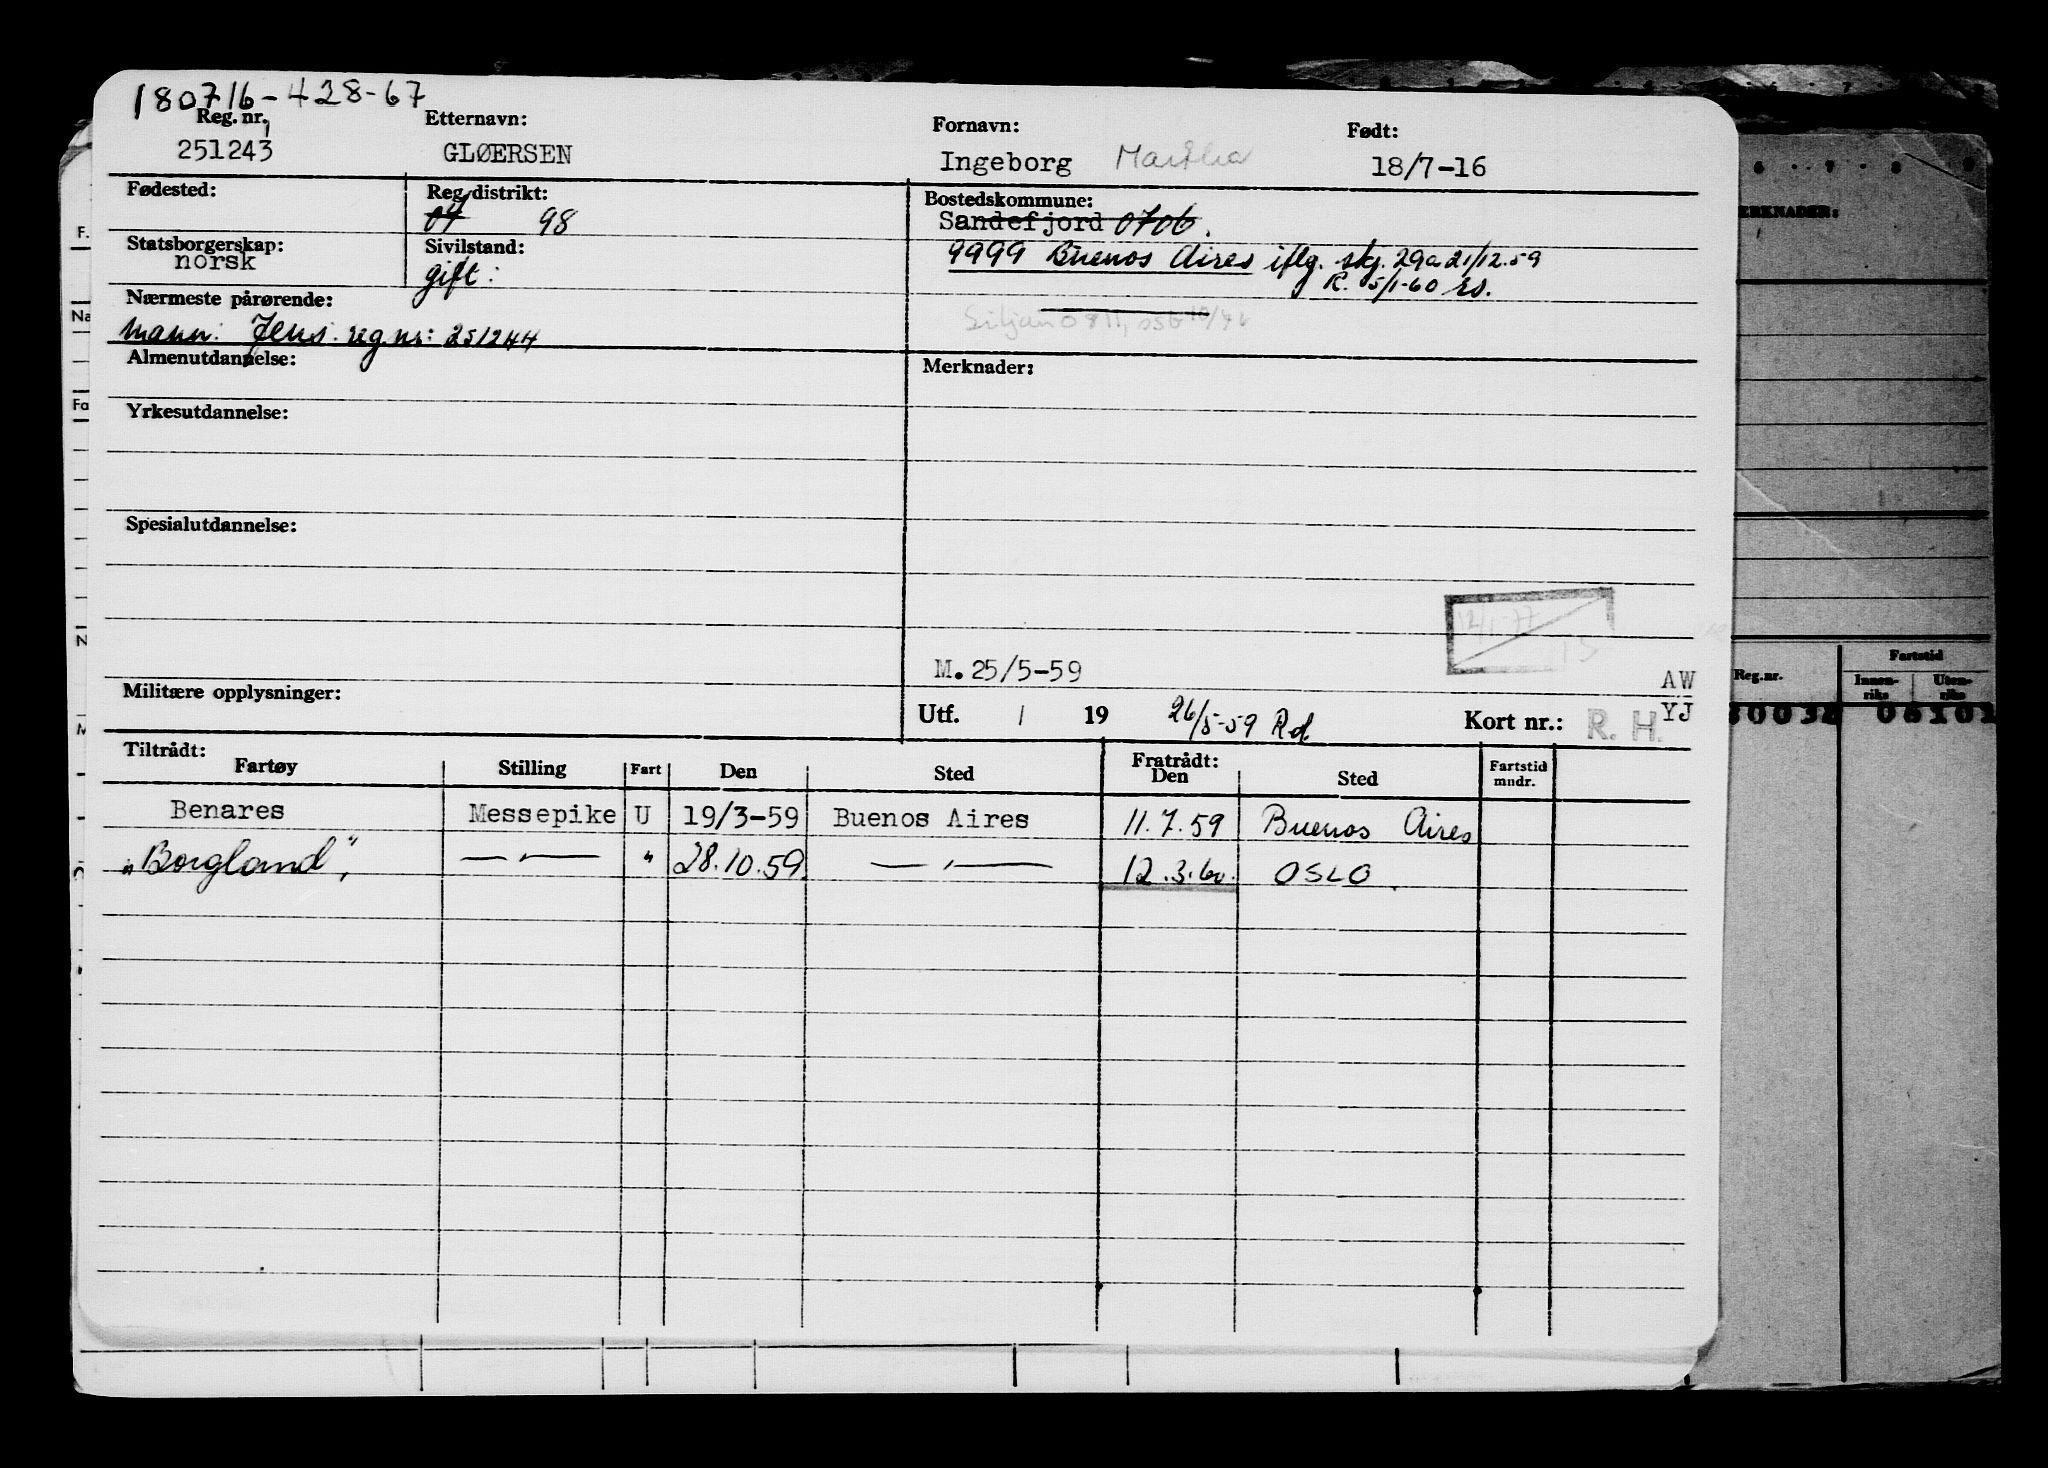 180716-428-67
Reg. nr. Etternavn: Fornavn: Født:
251243 GLØERSEN Ingeborg Martha 18/7-16
Fødested: Reg. distrikt: Bostedskommune:
04 98 Sandefjord 0706.
Statsborgerskap: Sivilstand: 9999 Buenos Aires iflg. skj. 29a 21/12.59
norsk gift: R. 15/1-60
Nærmeste pårørende:
Mann: Jens: reg nr: 251244
Almenutdannelse: Merknader:
Yrkesutdannelse:
Spesialutdannelse:
12/1-77
15
M. 25/5-59 AW
Militære opplysninger: YJ
Utf. / 19 26/5-59 Rd. Kort nr.: R. H.
Tiltrådt: Fratrådt:
Fartøy Stilling Fart Den Sted Den Sted Fartstid
mndr.
Benares Messepike U 19/3-59 Buenos Aires 11.7.59 Buenos Aires
"Borgland", —„— " 28.10.59. —„— 12.3.60. OSLO.
F.
Na
Fa
N
M
6 7 8 9
ERKNADER:
Fartstid
Reg.nr. Innen-
riks Uten-
riks
30038 06101